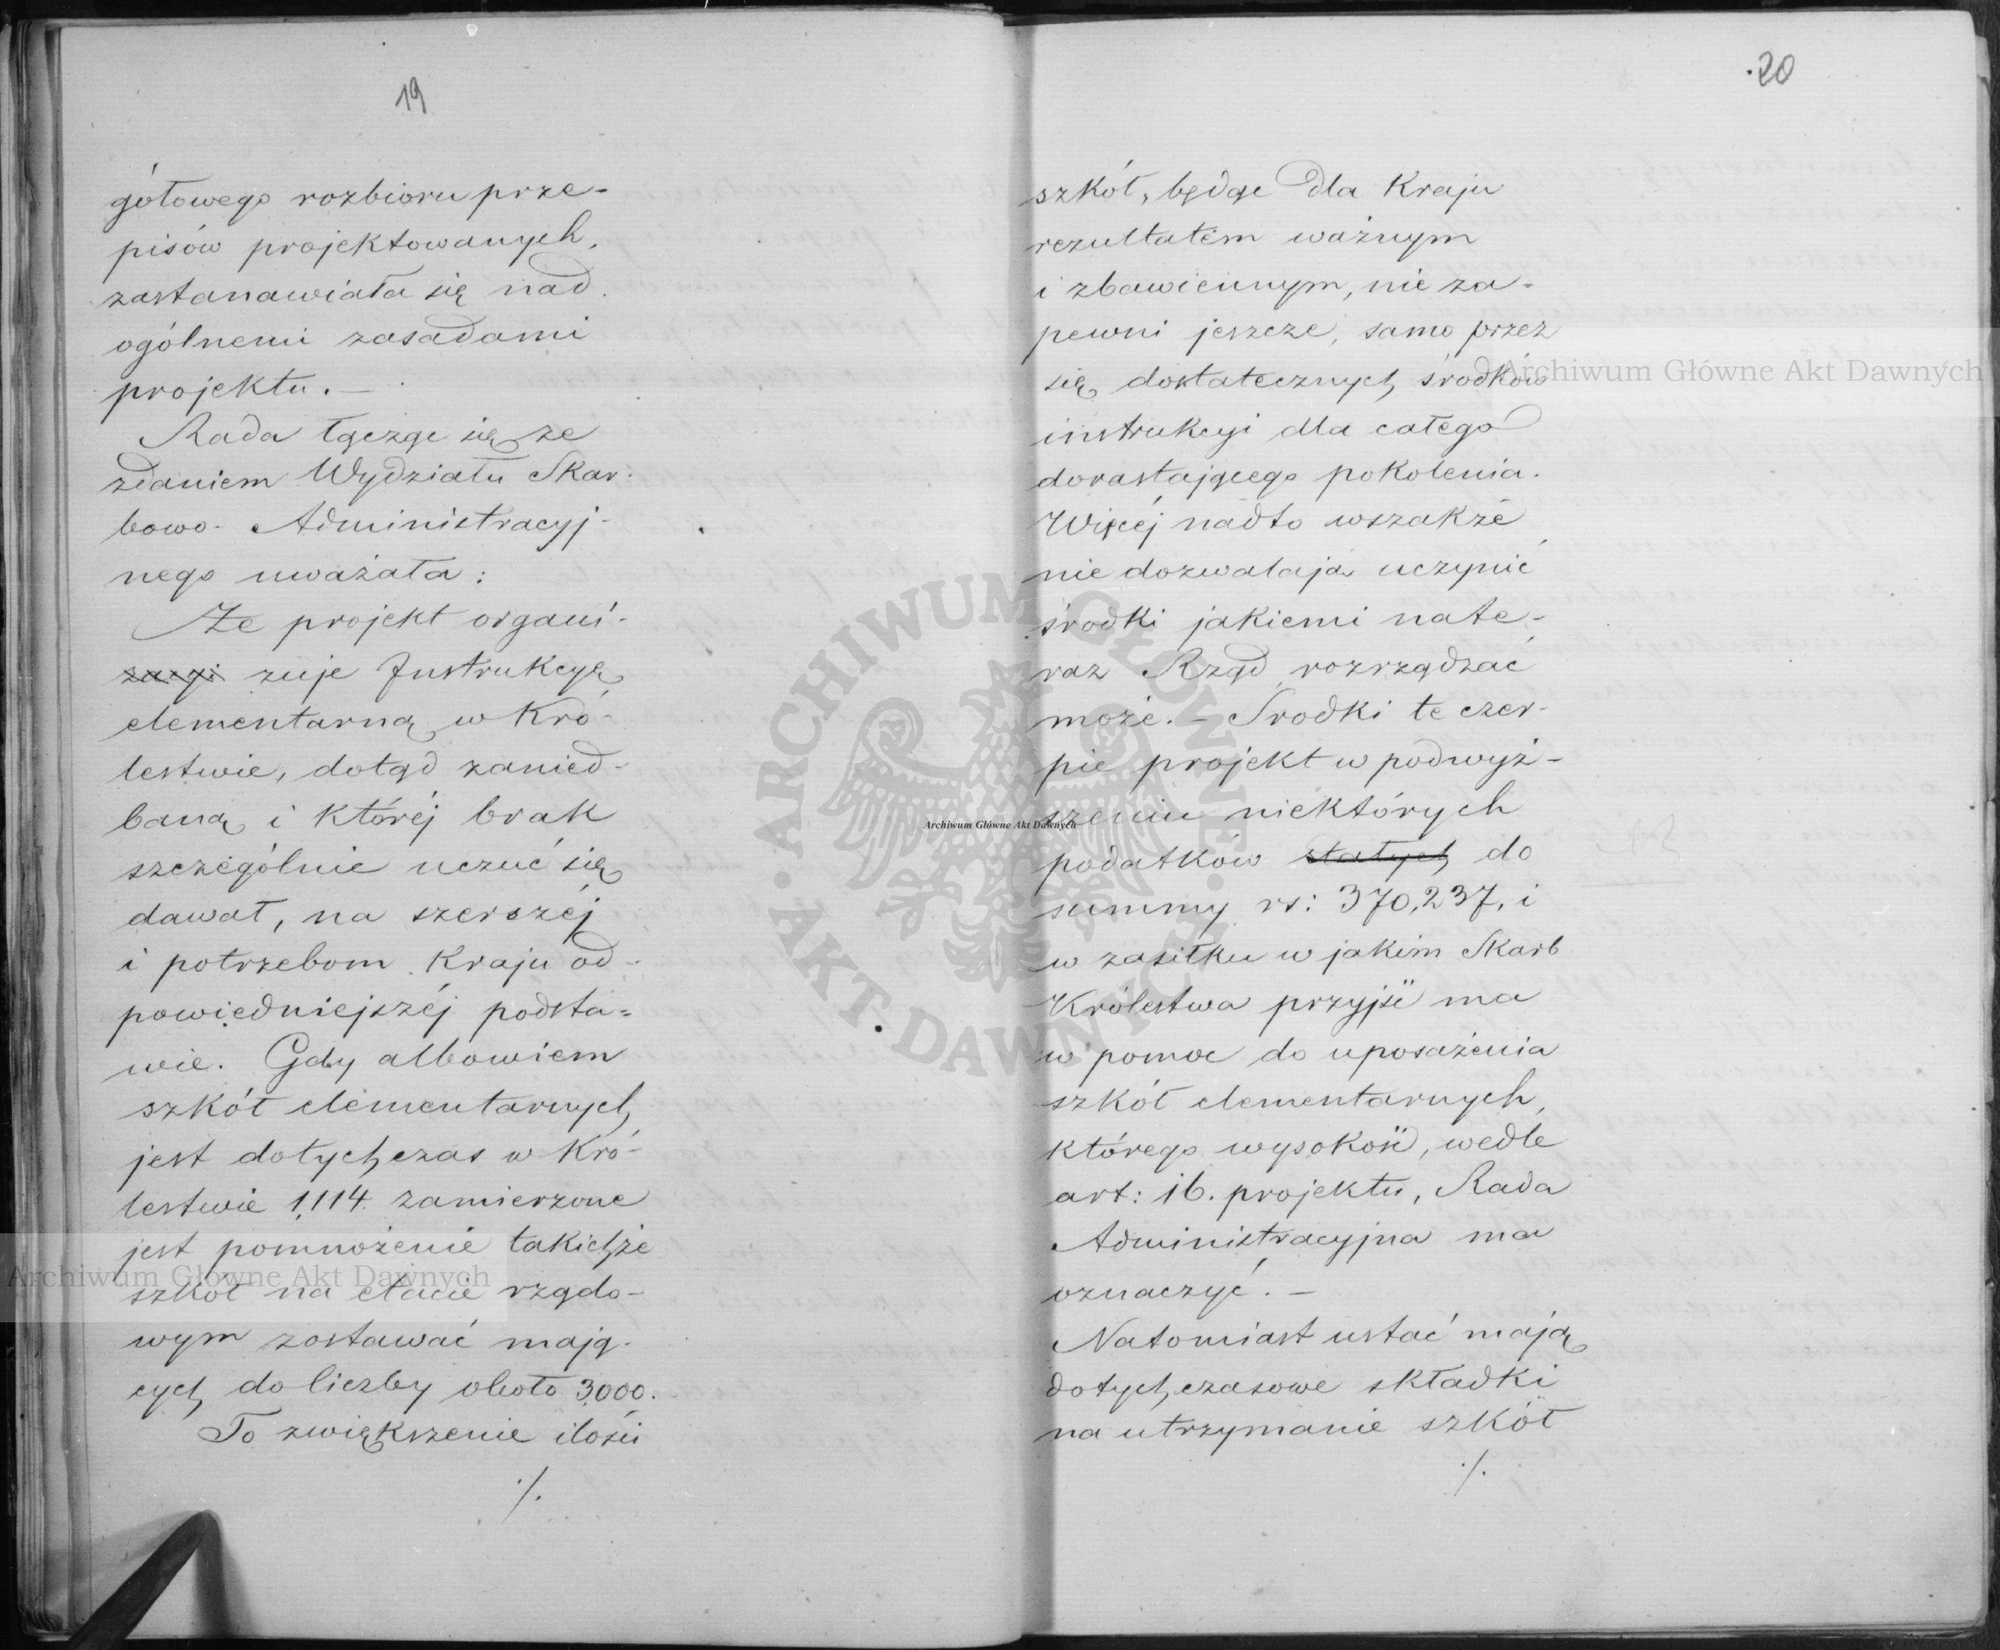 19
gółowego rozbioru prze-
pisów projektowanych,
zastanawiała się nad
ogólnemi zasadami
projektu. —
Rada łącząc się ze
zdaniem Wydziału Skar-
bowo-Administracyj-
nego uważała:
Że projekt organi-
zacyi zuje Instrukcyą
elementarną w Kró-
lestwie, dotąd zanied-
baną i któréj brak
szczególnie uczuć się
dawał, na szerszéj
i potrzebom Kraju od-
powiedniejszéj podsta-
wie. Gdy albowiem
szkół elementarnych
jest dotychczas w Kró-
lestwie 1,114. zamierzone
jest pomnożenie takichże
szkół na etacie rządo-
wym zostawać mają-
cych do liczby około 3,000.
To zwiększenie ilości
./.
20
szkół, będąc dla Kraju
rezultatem ważnym
i zbawiennym, nie za-
pewni jeszcze, samo przez
się dostatecznych środków
instrukcyi dla całego
dorastającego pokolenia.
Więcéj nadto wszakże
nie dozwalają uczynić
środki jakiemi nate-
raz Rząd rozrządzać
może. — Środki te czer-
pie projekt w podwyż-
szeniu niektórych
podatków stałych do
summy rs: 370,237, i
w zasiłku w jakim Skarb
Królestwa przyjść ma
w pomoc do uposażenia
szkół elementarnych,
którego wysokość, wedle
art: 16. projektu, Rada
Administracyjna ma
oznaczyć. —
Natomiast ustać mają
dotychczasowe składki
na utrzymanie szkół
./.
Archiwum Główne Akt Dawnych
Archiwum Główne Akt Dawnych
Archiwum Główne Akt Dawnych
ARCHIWUM GŁÓWNE · AKT DAWNYCH ·